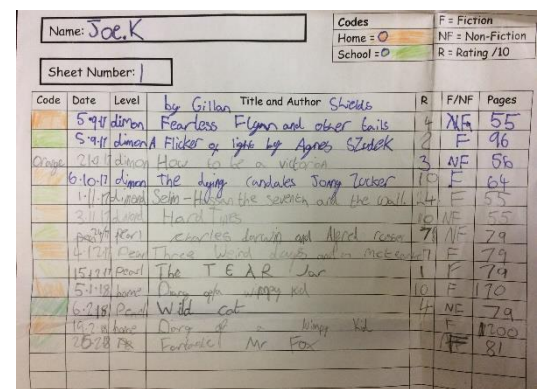 Name: Joe.K
Codes
Home = O
School = O
F = Fiction
NF = Non-Fiction
R = Rating /10
Sheet Number: 1
Code Date Level Title and Author R F/NF Pages
by Gillan Shields
5.9.17 dimon Fearless Flynn and other tails 4 NF 55
5.9.17 dimon A Flicker of light by Agnes Szudek 2 F 96
Orange dimon How to be a victorian 3 NF 56
6.10.17 dimon The dying candales Jonny Zucker 10 F 64
1.11.17 the seventh and the wall F 55
3.11.17 Hard NF 55
Pearl Charles darwin and 7 NF 79
4.12.17 Pearl Three Weird days and a 7 F 79
15.12.17 Pearl The TEAR Jar 1 F 79
5.1.18 home Diary of a wimpy kid 10 F 170
6.2.18 Pearl Wild cat 4 NF 79
home Diary of a wimpy kid F 200
Fantastic Mr Fox F 81